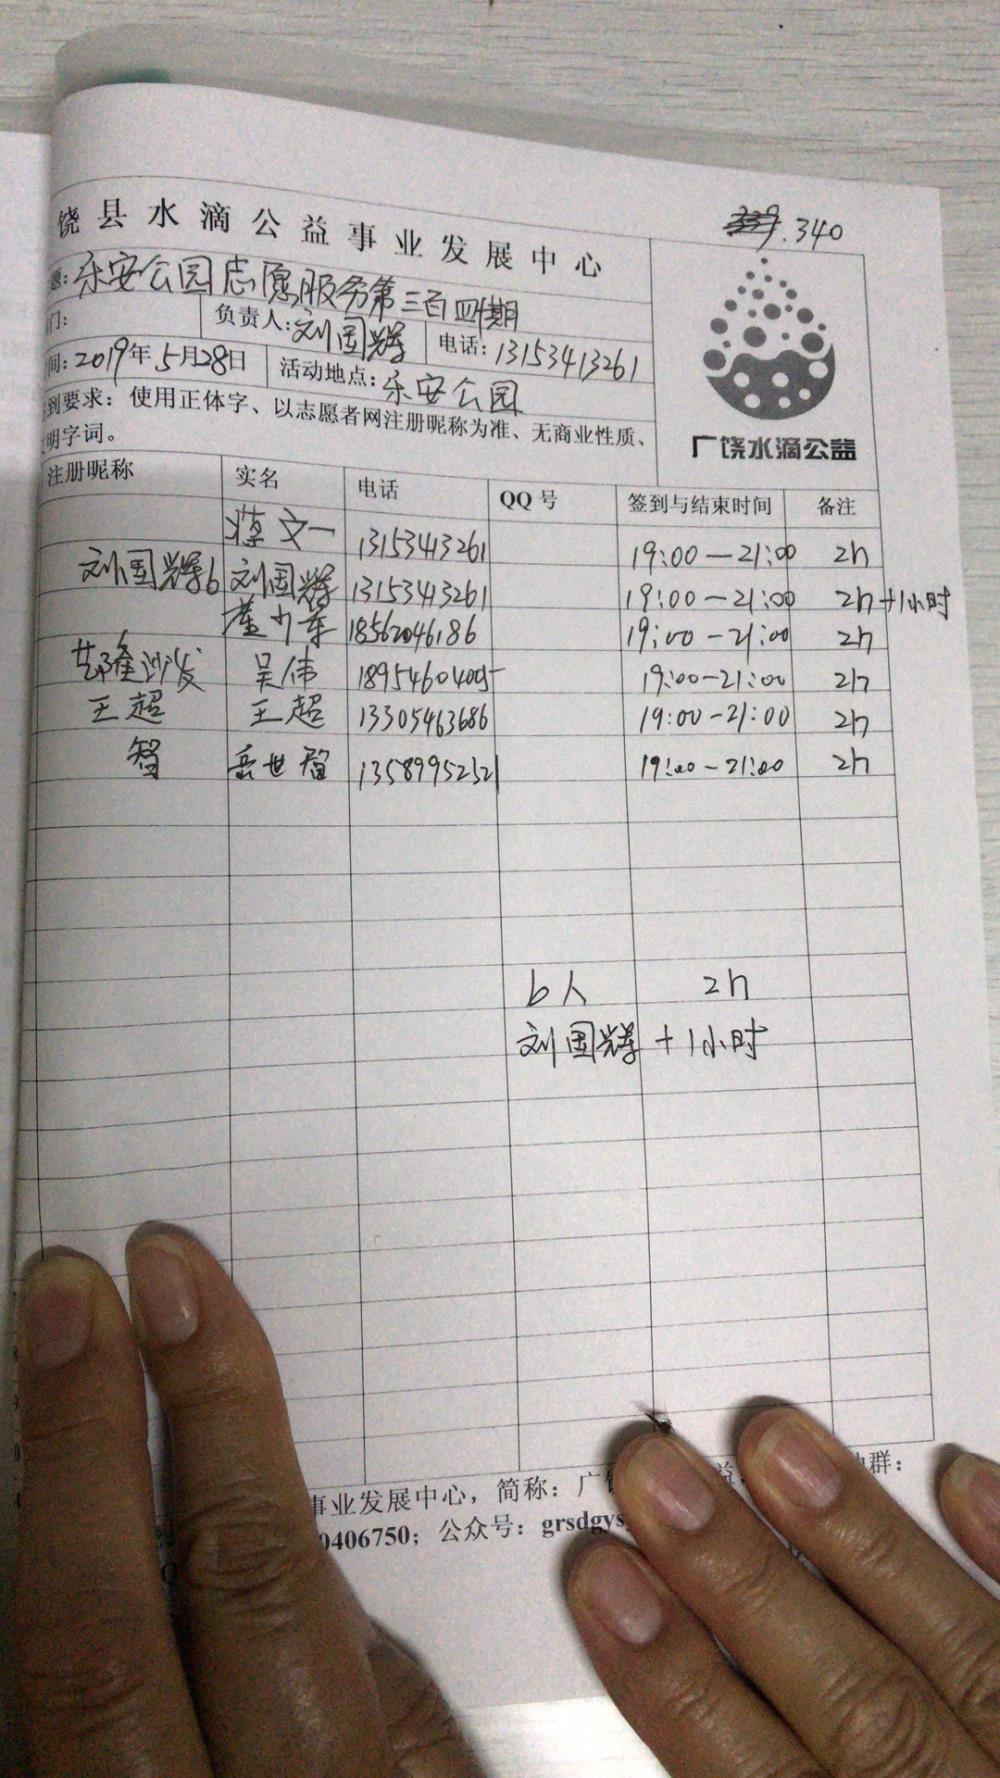 339.340
饶县水滴公益事业发展中心
乐安公园志愿服务第三百四十期
负责人:刘国辉 电话:13153413261
间:2019年5月28日 活动地点:乐安公园
到要求:使用正体字、以志愿者网注册昵称为准、无商业性质、
明字词。
广饶水滴公益
注册昵称 实名 电话 QQ号 签到与结束时间 备注
文一 13153413261 19:00-21:00 2h
刘国辉6 刘国辉 13153413261 19:00-21:00 2h+1小时
18562046186 19:00-21:00 2h
隆沙发 吴伟 18954604005 19:00-21:00 2h
王超 王超 13305463686 19:00-21:00 2h
智 岳世智 13589952521 19:00-21:00 2h
6人 2h
刘国辉+1小时
事业发展中心,简称:广饶 益 群:
0406750;公众号:grsdgys